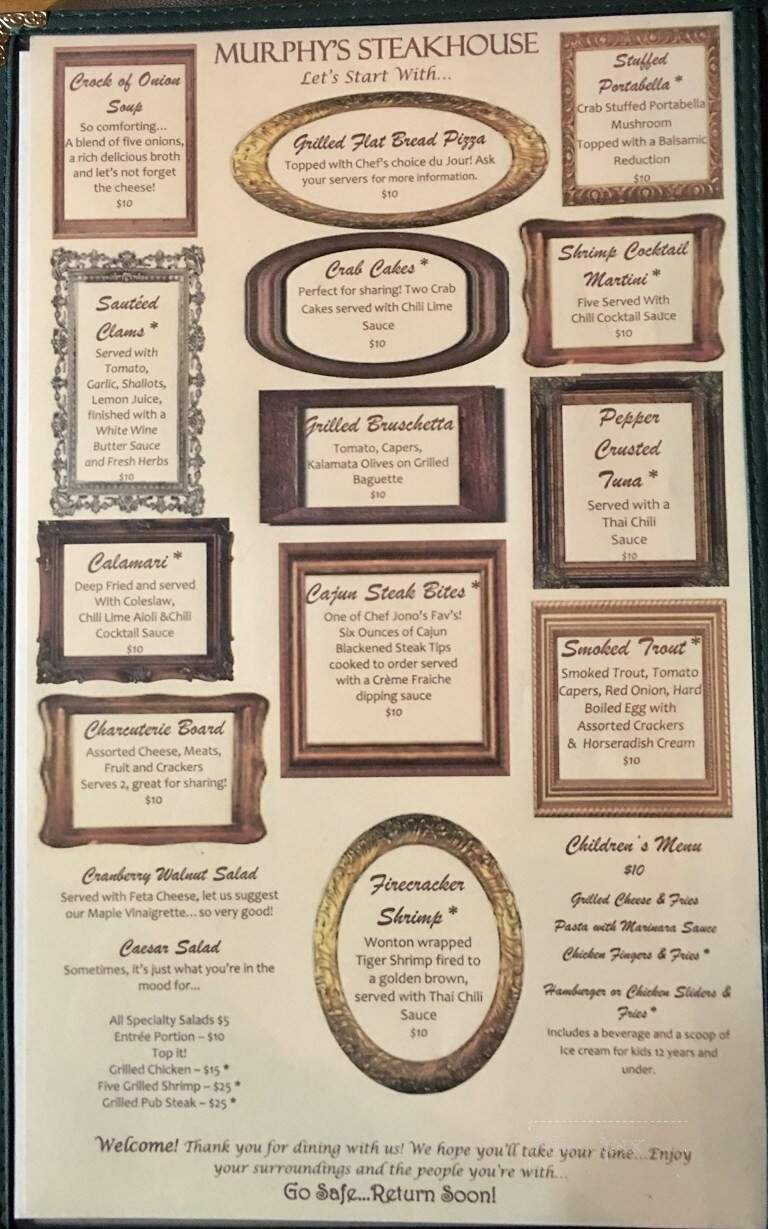 MURPHY'S STEAKHOUSE
Let's Start With...
Crock of Onion
Soup
So comforting...
A blend of five onions,
a rich delicious broth
and let's not forget
the cheese!
$10
Grilled Flat Bread Pizza
Topped with Chef's choice du Jour! Ask
your servers for more information.
$10
Stuffed
Portabella *
Crab Stuffed Portabella
Mushroom
Topped with a Balsamic
Reduction
$10
Sautéed
Clams *
Served with
Tomato,
Garlic, Shallots,
Lemon Juice,
finished with a
White Wine
Butter Sauce
and Fresh Herbs
$10
Crab Cakes *
Perfect for sharing! Two Crab
Cakes served with Chili Lime
Sauce
$10
Shrimp Cocktail
Martini *
Five Served With
Chili Cocktail Sauce
$10
Grilled Bruschetta
Tomato, Capers,
Kalamata Olives on Grilled
Baguette
$10
Pepper
Crusted
Tuna *
Served with a
Thai Chili
Sauce
$10
Calamari *
Deep Fried and served
With Coleslaw,
Chili Lime Aioli &Chili
Cocktail Sauce
$10
Cajun Steak Bites *
One of Chef Jono's Fav's!
Six Ounces of Cajun
Blackened Steak Tips
cooked to order served
with a Crème Fraiche
dipping sauce
$10
Smoked Trout *
Smoked Trout, Tomato
Capers, Red Onion, Hard
Boiled Egg with
Assorted Crackers
& Horseradish Cream
$10
Charcuterie Board
Assorted Cheese, Meats,
Fruit and Crackers
Serves 2, great for sharing!
$10
Cranberry Walnut Salad
Served with Feta Cheese, let us suggest
our Maple Vinaigrette... so very good!
Caesar Salad
Sometimes, it's just what you're in the
mood for...
All Specialty Salads $5
Entrée Portion – $10
Top it!
Grilled Chicken – $15 *
Five Grilled Shrimp – $25 *
Grilled Pub Steak – $25 *
Firecracker
Shrimp *
Wonton wrapped
Tiger Shrimp fired to
a golden brown,
served with Thai Chili
Sauce
$10
Children's Menu
$10
Grilled Cheese & Fries
Pasta with Marinara Sauce
Chicken Fingers & Fries *
Hamburger or Chicken Sliders &
Fries *
Includes a beverage and a scoop of
Ice cream for kids 12 years and
under.
Welcome! Thank you for dining with us! We hope you'll take your time...Enjoy
your surroundings and the people you're with...
Go Safe...Return Soon!